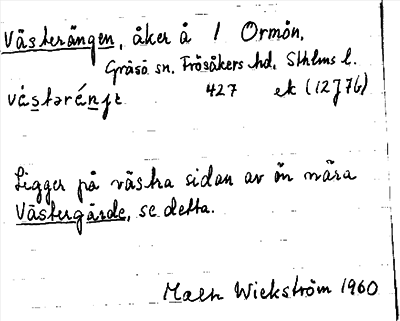 Västerängen, åker å 1 Ormön,
Gräsö sn. Frösåkers hd. Sthlms l.
427 ek (12J7b)
Ligger på västra sidan av ön nära
Västergärde, se detta.
Wickström 1960